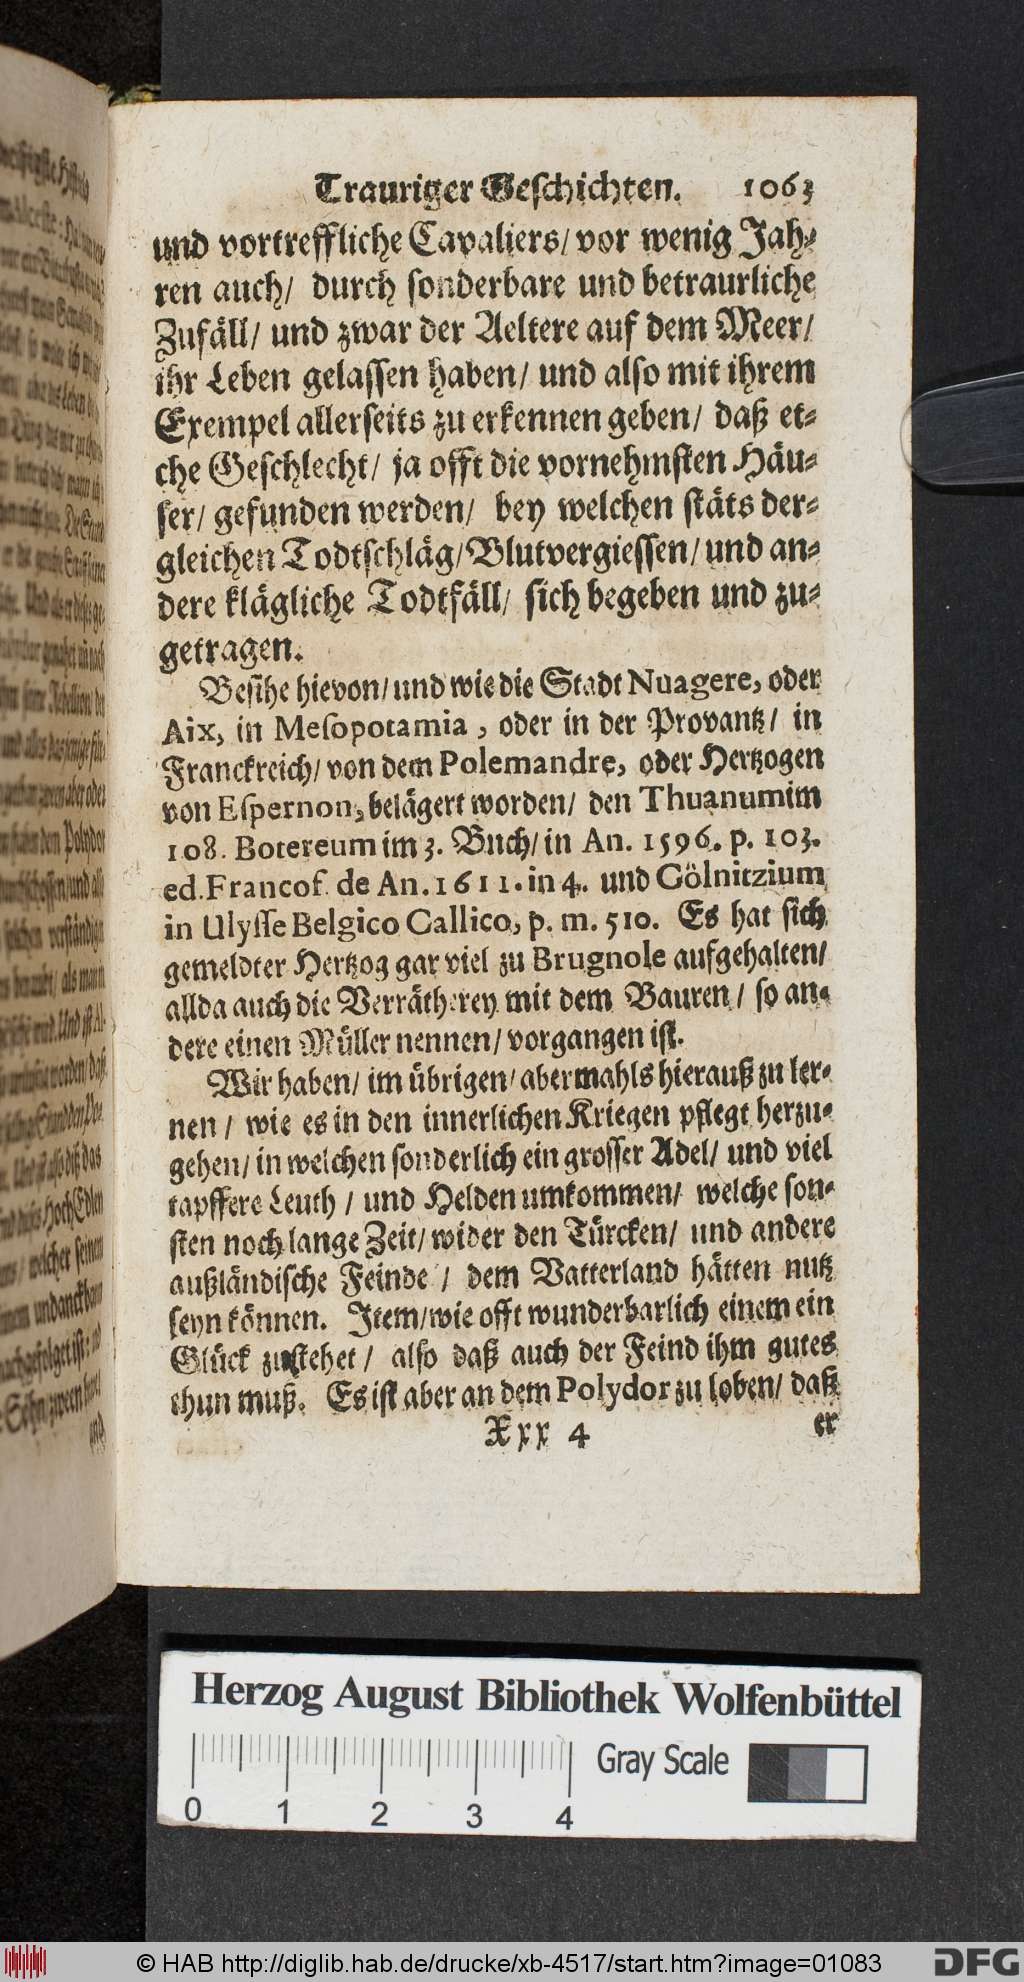 Trauriger Geschichten. 1063
und vortreffliche Cavaliers/ vor wenig Jah-
ren auch/ durch sonderbare und betraurliche
Zufäll/ und zwar der Aeltere auf dem Meer/
ihr Leben gelassen haben/ und also mit ihrem
Exempel allerseits zu erkennen geben/ daß et-
che Geschlecht/ ja offt die vornehmsten Häu-
ser/ gefunden werden/ bey welchen stäts der-
gleichen Todtschläg/ Blutvergiessen/ und an-
dere klägliche Todtfäll/ sich begeben und zu-
getragen.
Besihe hievon/ und wie die Stadt Nuagere, oder
Aix, in Mesopotamia, oder in der Provantz/ in
Franckreich/ von dem Polemandre, oder Hertzogen
von Espernon, belägert worden/ den Thuanum im
108. Botereum im 3. Buch/ in An. 1596. p. 103.
ed. Francof. de An. 1611. in 4. und Gölnitzium
in Ulysse Belgico Gallico, p. m. 510. Es hat sich
gemeldter Hertzog gar viel zu Brugnole aufgehalten/
allda auch die Verrätherey mit dem Bauren/ so an-
dere einen Müller nennen/ vorgangen ist.
Wir haben/ im übrigen/ abermahls hierauß zu ler-
nen/ wie es in den innerlichen Kriegen pflegt herzu-
gehen/ in welchen sonderlich ein grosser Adel/ und viel
tapffere Leuth/ und Helden umkommen/ welche son-
sten noch lange Zeit/ wider den Türcken/ und andere
außländische Feinde/ dem Vatterland hätten nutz
seyn können. Item/ wie offt wunderbarlich einem ein
Glück zustehet/ also daß auch der Feind ihm gutes
thun muß. Es ist aber an dem Polydor zu loben/ daß
Xxx 4 er
Herzog August Bibliothek Wolfenbüttel
0 1 2 3 4 Gray Scale
© HAB http://diglib.hab.de/drucke/xb-4517/start.htm?image=01083
DFG